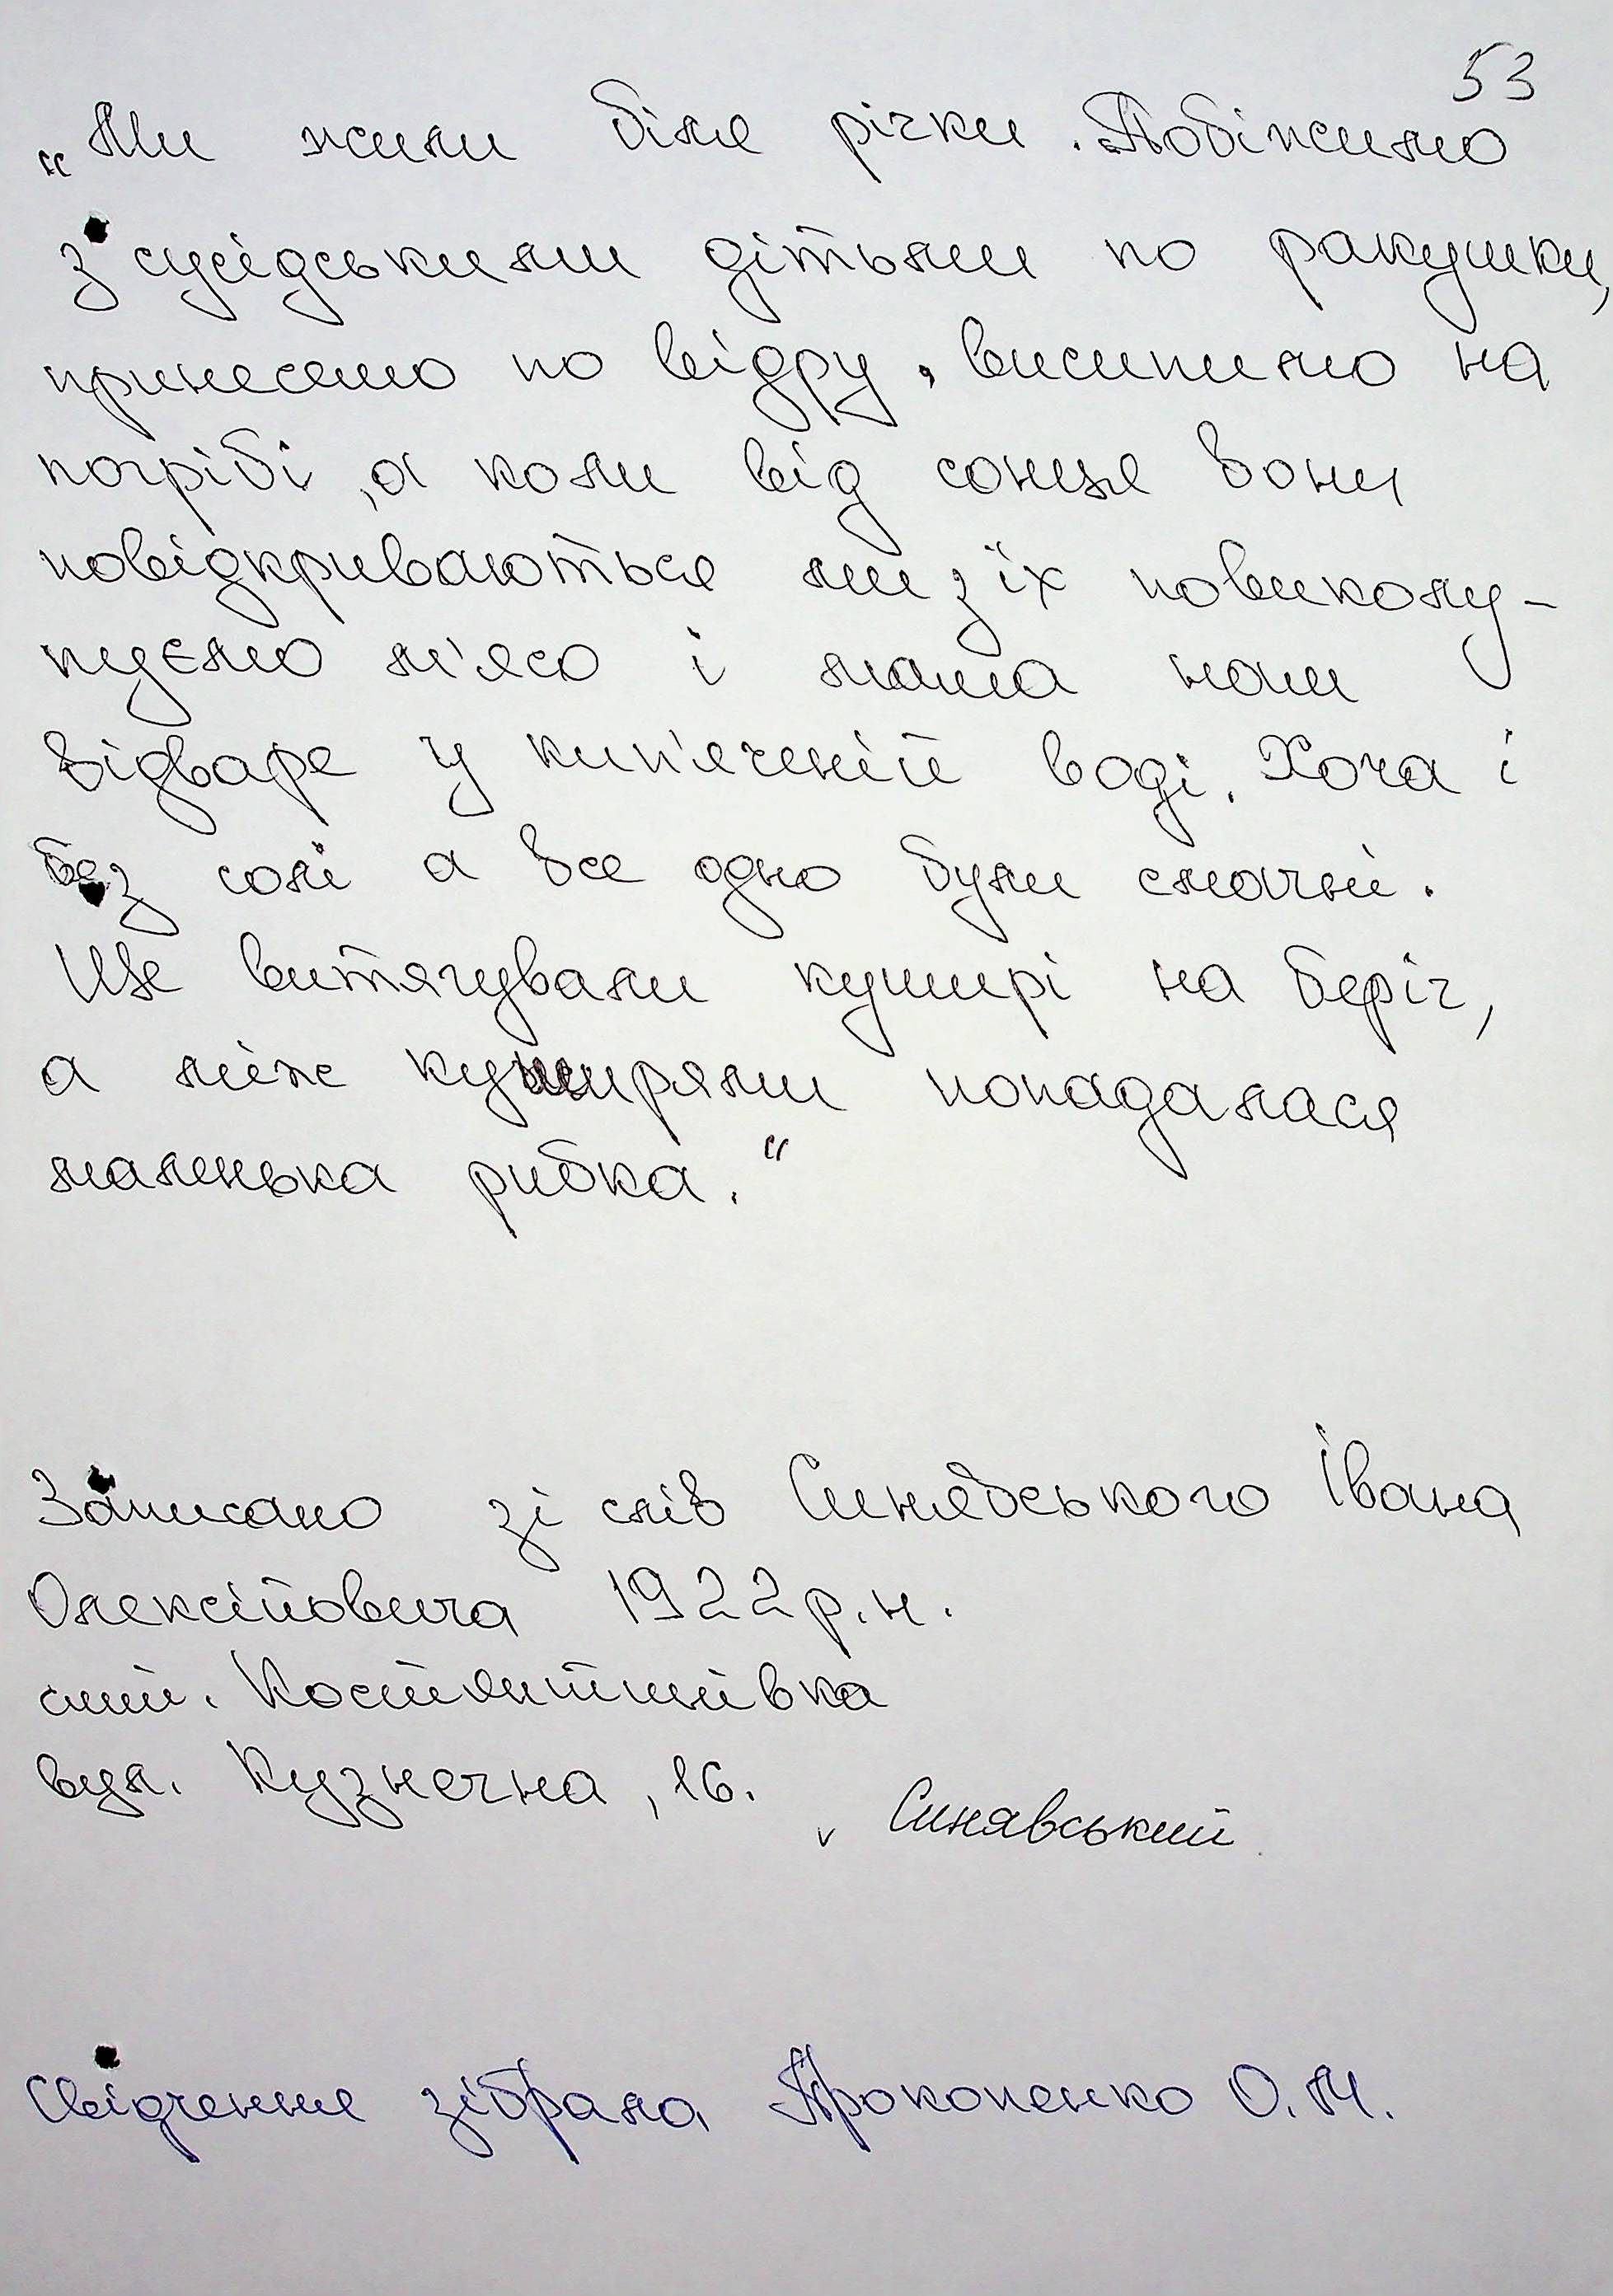 53
„Ми жили біля річки. Побіжимо
з сусідськими дітьми по ракушки,
принесемо по відру, висипимо на
погрібі, а коли від сонця вони
повідкриваються ми з їх повиколу-
пуємо м'ясо і мама нам
відваре у кип'яченій воді. Хоча і
без солі а все одно були смачні.
Ще витягували куширі на беріг,
а між куширями попадалася
маленька рибка."
Записано зі слів Синявського Івана
Олексійовича 1922 р.н.
смт. Костянтинівка
вул. Кузнечна, 16.
v Синявський
Свідчення зібрала Прокопенко О.М.